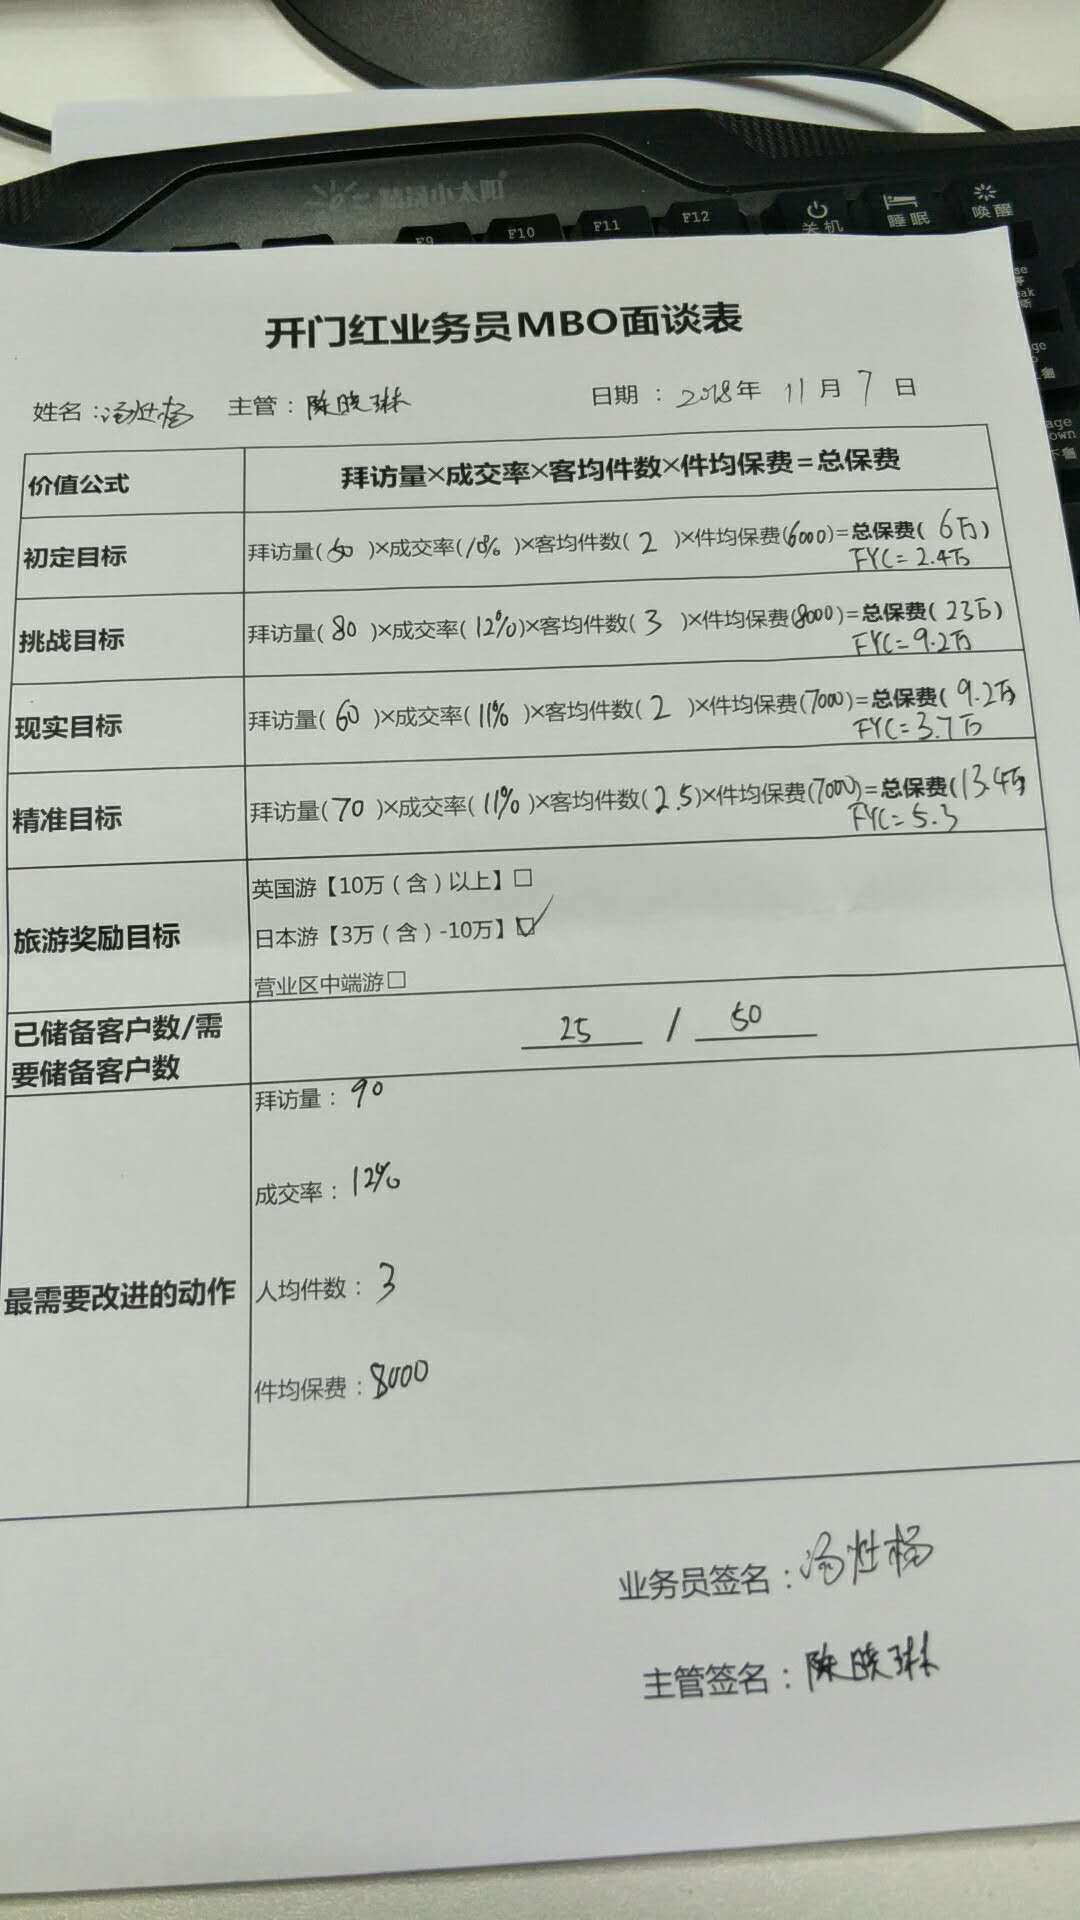 F9 F10 F11 F12 关机 睡眠 唤醒
开门红业务员MBO面谈表
姓名： 主管：陈晓琳 日期：2018年 11月 7日
价值公式 拜访量×成交率×客均件数×件均保费=总保费
初定目标 拜访量(50)×成交率(10%)×客均件数(2)×件均保费(6000)=总保费(6万)
FYC=2.4万
挑战目标 拜访量(80)×成交率(12%)×客均件数(3)×件均保费(8000)=总保费(23万)
FYC=9.2万
现实目标 拜访量(60)×成交率(11%)×客均件数(2)×件均保费(7000)=总保费(9.2万
FYC=3.7万
精准目标 拜访量(70)×成交率(11%)×客均件数(2.5)×件均保费(7000)=总保费(13.4万
FYC=5.3
旅游奖励目标
英国游【10万（含）以上】□
日本游【3万（含）-10万】☑
营业区中端游□
已储备客户数/需
要储备客户数
25 / 50
最需要改进的动作
拜访量：90
成交率：12%
人均件数：3
件均保费：8000
业务员签名：
主管签名：陈晓琳